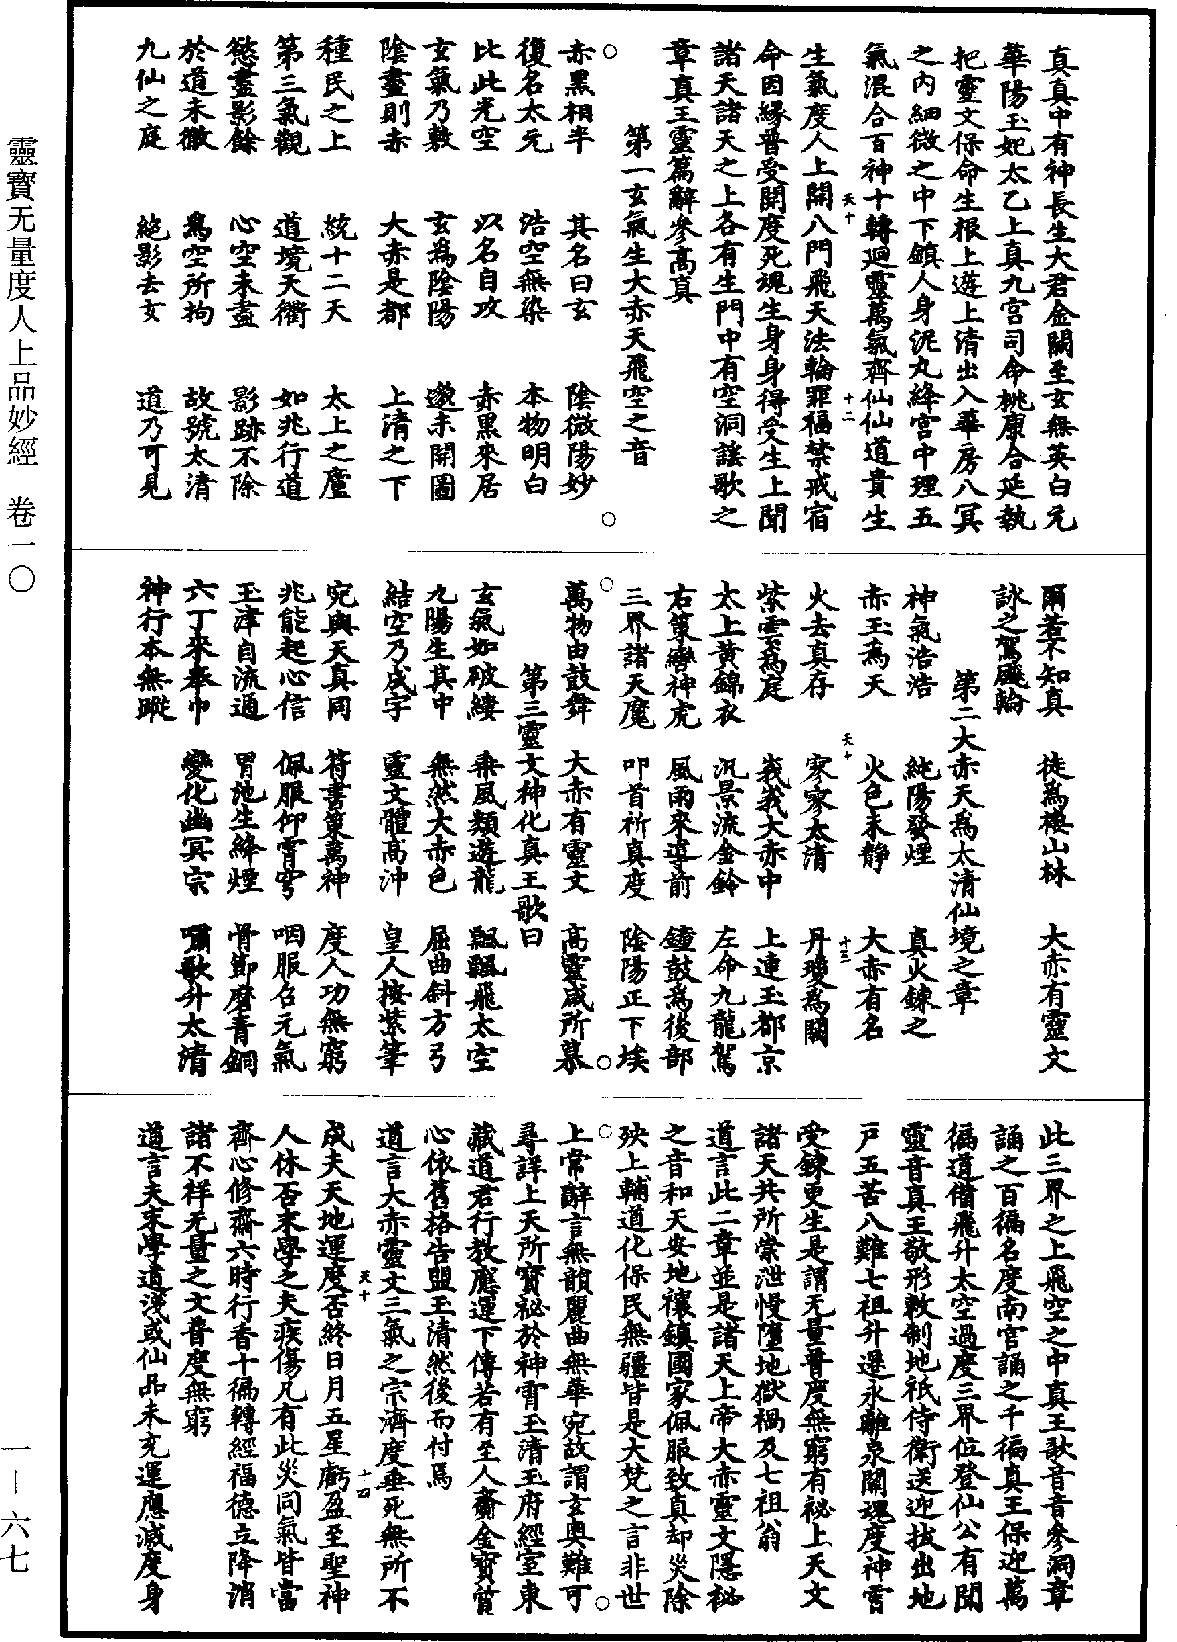 真真中有神長生大君金闕至玄無英白元
華陽玉妃太乙上真九宮司命桃康合延執
把靈文保命生根上遊上清出入華房八冥
之內細微之中下鎮人身泥丸絳宮中理五
氣混合百神十轉迴靈萬氣齊仙仙道貴生
天十 十二
生氣度人上開八門飛天法輪罪福禁戒宿
命因緣普受開度死魂生身身得受生上聞
諸天諸天之上各有生門中有空洞謠歌之
章真王靈篇辭參高真
第一玄氣生大赤天飛空之音
赤黑相半 其名曰玄 陰微陽妙
復名太元 浩空無染 本物明白
比此光空 以名自攻 赤黑來居
玄氣乃敷 玄為陰陽 邈未開圖
陰盡則赤 大赤是都 上清之下
種民之上 統十二天 太上之廬
第三氣觀 道境天衢 如兆行道
慾盡影餘 心空未盡 影跡不除
於道未徹 為空所拘 故號太清
九仙之庭 絕影去玄 道乃可見
爾若不知真 徒為棲山林 大赤有靈文
詠之駕飈輪
第二大赤天為太清仙境之章
神氣浩浩 純陽發煙 真火鍊之
赤玉為天 火色未靜 大赤有名
天十 十三
火去真存 寥寥太清 丹瓊為闕
紫雲為庭 峩峩大赤中 上連玉都京
太上黃錦衣 汎景流金鈴 左命九龍駕
右策轡神虎 風雨來導前 鐘鼓為後部
三界諸天魔 叩首祈真度 陰陽正下埃
萬物由鼓舞 大赤有靈文 高靈咸所慕
第三靈文神化真王歌曰
玄氣如破縷 乘風類遊龍 飄飄飛太空
九陽生其中 無然大赤色 屈曲斜方弓
結空乃成字 靈文體高沖 皇人按紫筆
宛與天真同 符書策萬神 度人功無窮
兆能起心信 佩服仰霄穹 咽服召元氣
玉津自流通 胃池生絳煙 骨節磨青銅
六丁來奉巾 變化幽冥宗 嘯歌升太清
神行本無蹤
此三界之上飛空之中真王歌音音參洞章
誦之百徧名度南宮誦之千徧真王保迎萬
徧道備飛升太空過度三界位登仙公有聞
靈音真王敬形敕制地祇侍衛送迎拔出地
戶五苦八難七祖升遷永離泉關魂度神霄
受鍊更生是謂无量普度無窮有祕上天文
諸天共所崇泄慢墮地獄禍及七祖翁
道言此二章並是諸天上帝大赤靈文隱祕
之音和天安地禳鎮國家佩服致真却災除
殃上輔道化保民無疆皆是大梵之言非世
上常辭言無韻麗曲無華宛故謂玄奧難可
尋詳上天所寶祕於神霄玉清玉府經室東
藏道君行教應運下傳若有至人齎金寶質
心依舊格告盟玉清然後而付焉
道言大赤靈文三氣之宗濟度垂死無所不
天十 十四
成夫天地運度否終日月五星虧盈至聖神
人休否末學之夫疾傷凡有此災同氣皆當
齊心修齋六時行香十徧轉經福德立降消
諸不祥无量之文普度無窮
道言夫末學道淺或仙品未充運應滅度身
靈寶无量度人上品妙經 卷一〇
一—六七